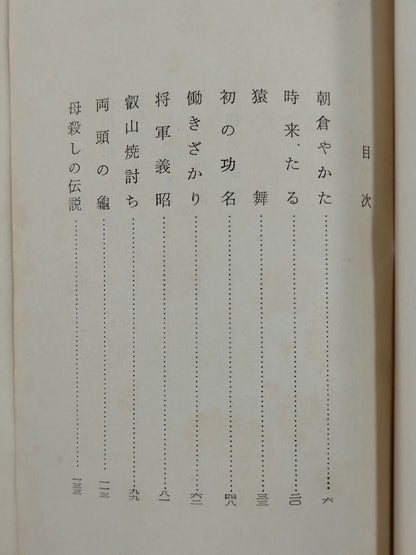 目次
朝倉やかた……六
時来たる……二〇
猿舞……三三
初の功名……四八
働きざかり……六二
将軍義昭……八一
叡山焼討ち……九九
両頭の龜……一一三
母殺しの伝説……一三三